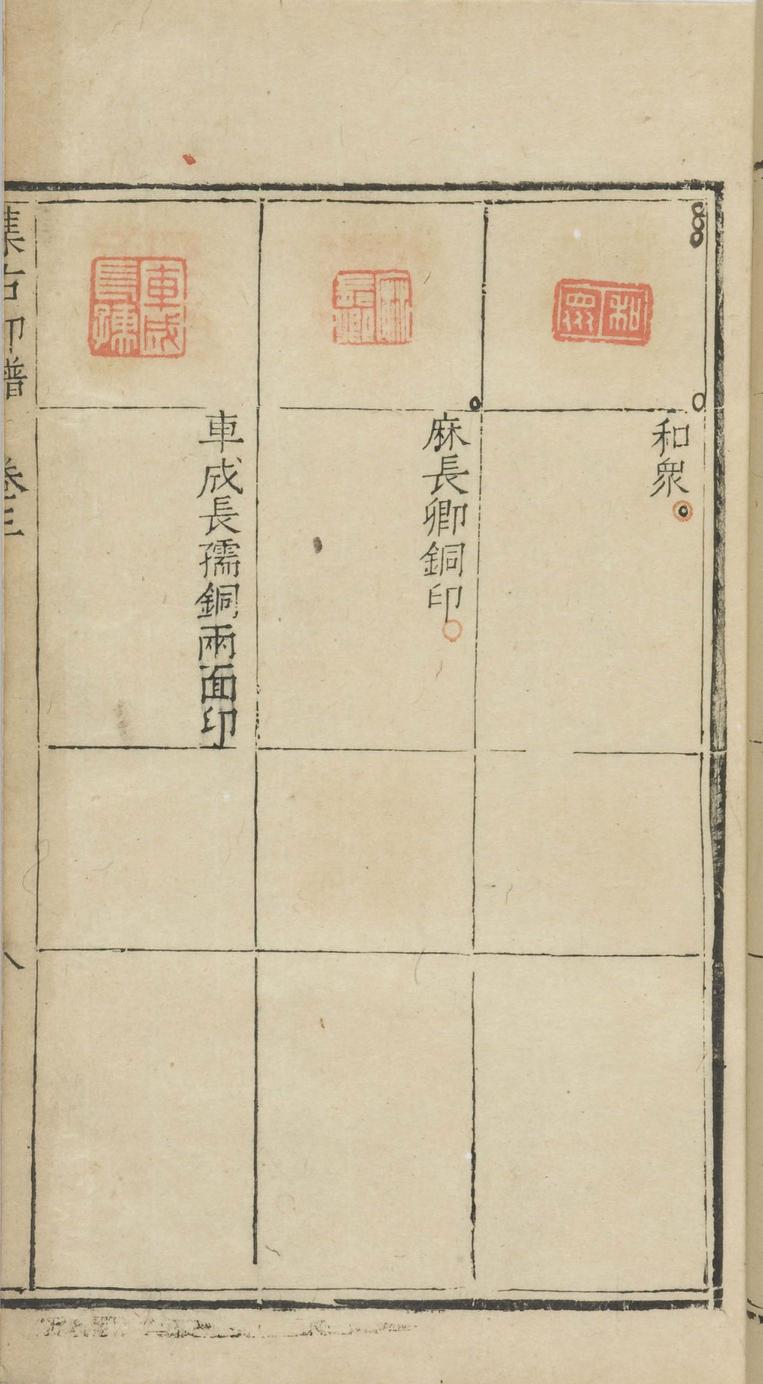 和衆
和衆
麻長卿
麻長卿銅印
車成長孺
車成長孺銅兩面印
集古印譜 卷三
八